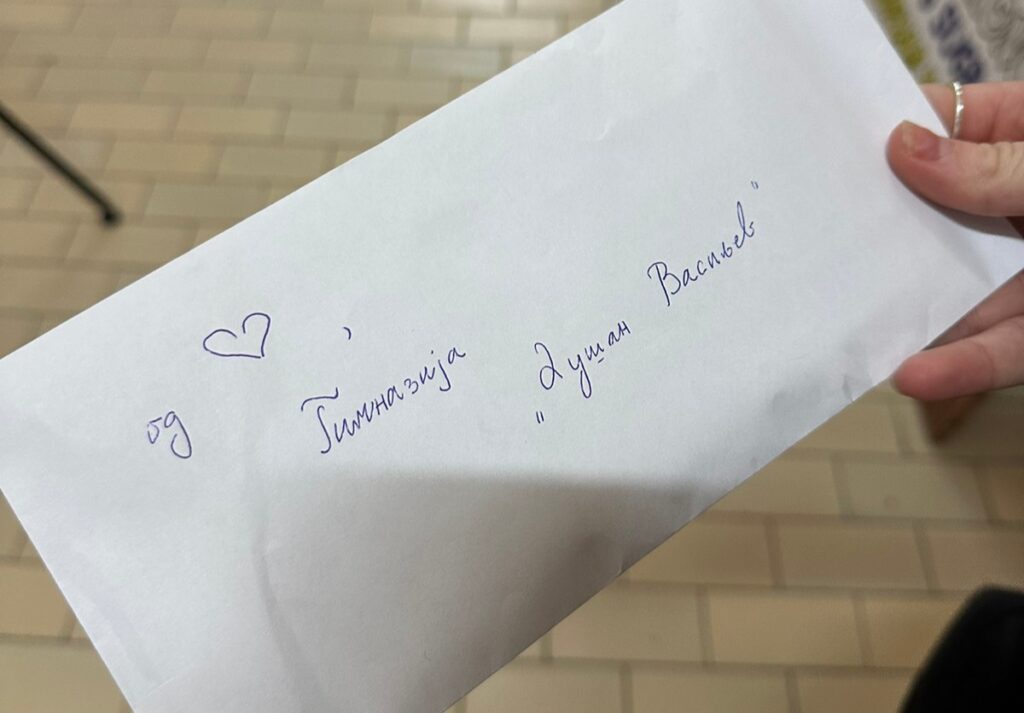 од ♡,
Гимназија „Душан Васиљев"